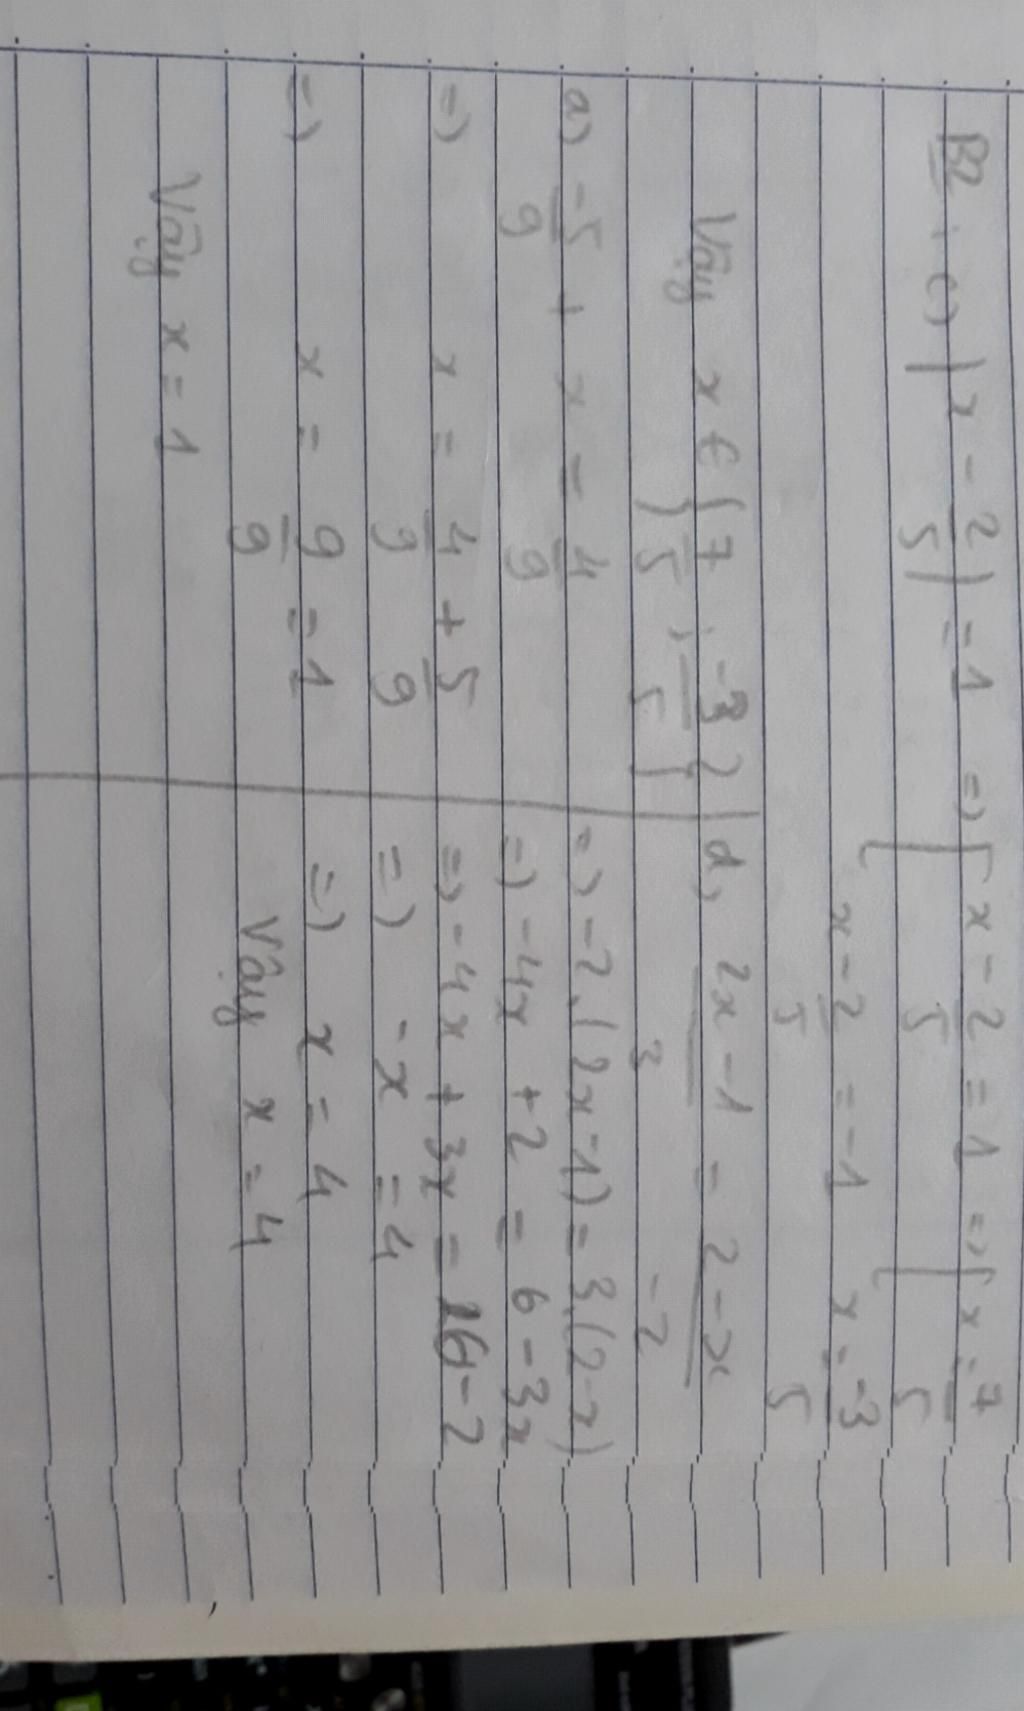 B2: c) |x - 2/5| = 1 => [ x - 2/5 = 1 => [ x = 7/5
x - 2/5 = -1 x = -3/5
Vậy x ∈ {7/5 ; -3/5}
a) -5/9 + x = 4/9
=> x = 4/9 + 5/9
=> x = 9/9 = 1
Vậy x = 1
d, 2x - 1/3 = 2 - x/-2
=> -2.(2x-1) = 3.(2-x)
=> -4x + 2 = 6 - 3x
=> -4x + 3x = 6 - 2
=> -x = 4
=> x = 4
Vậy x = 4